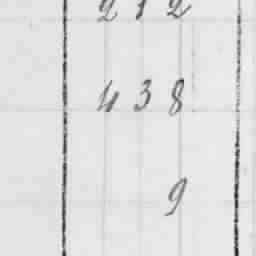 212
438
9